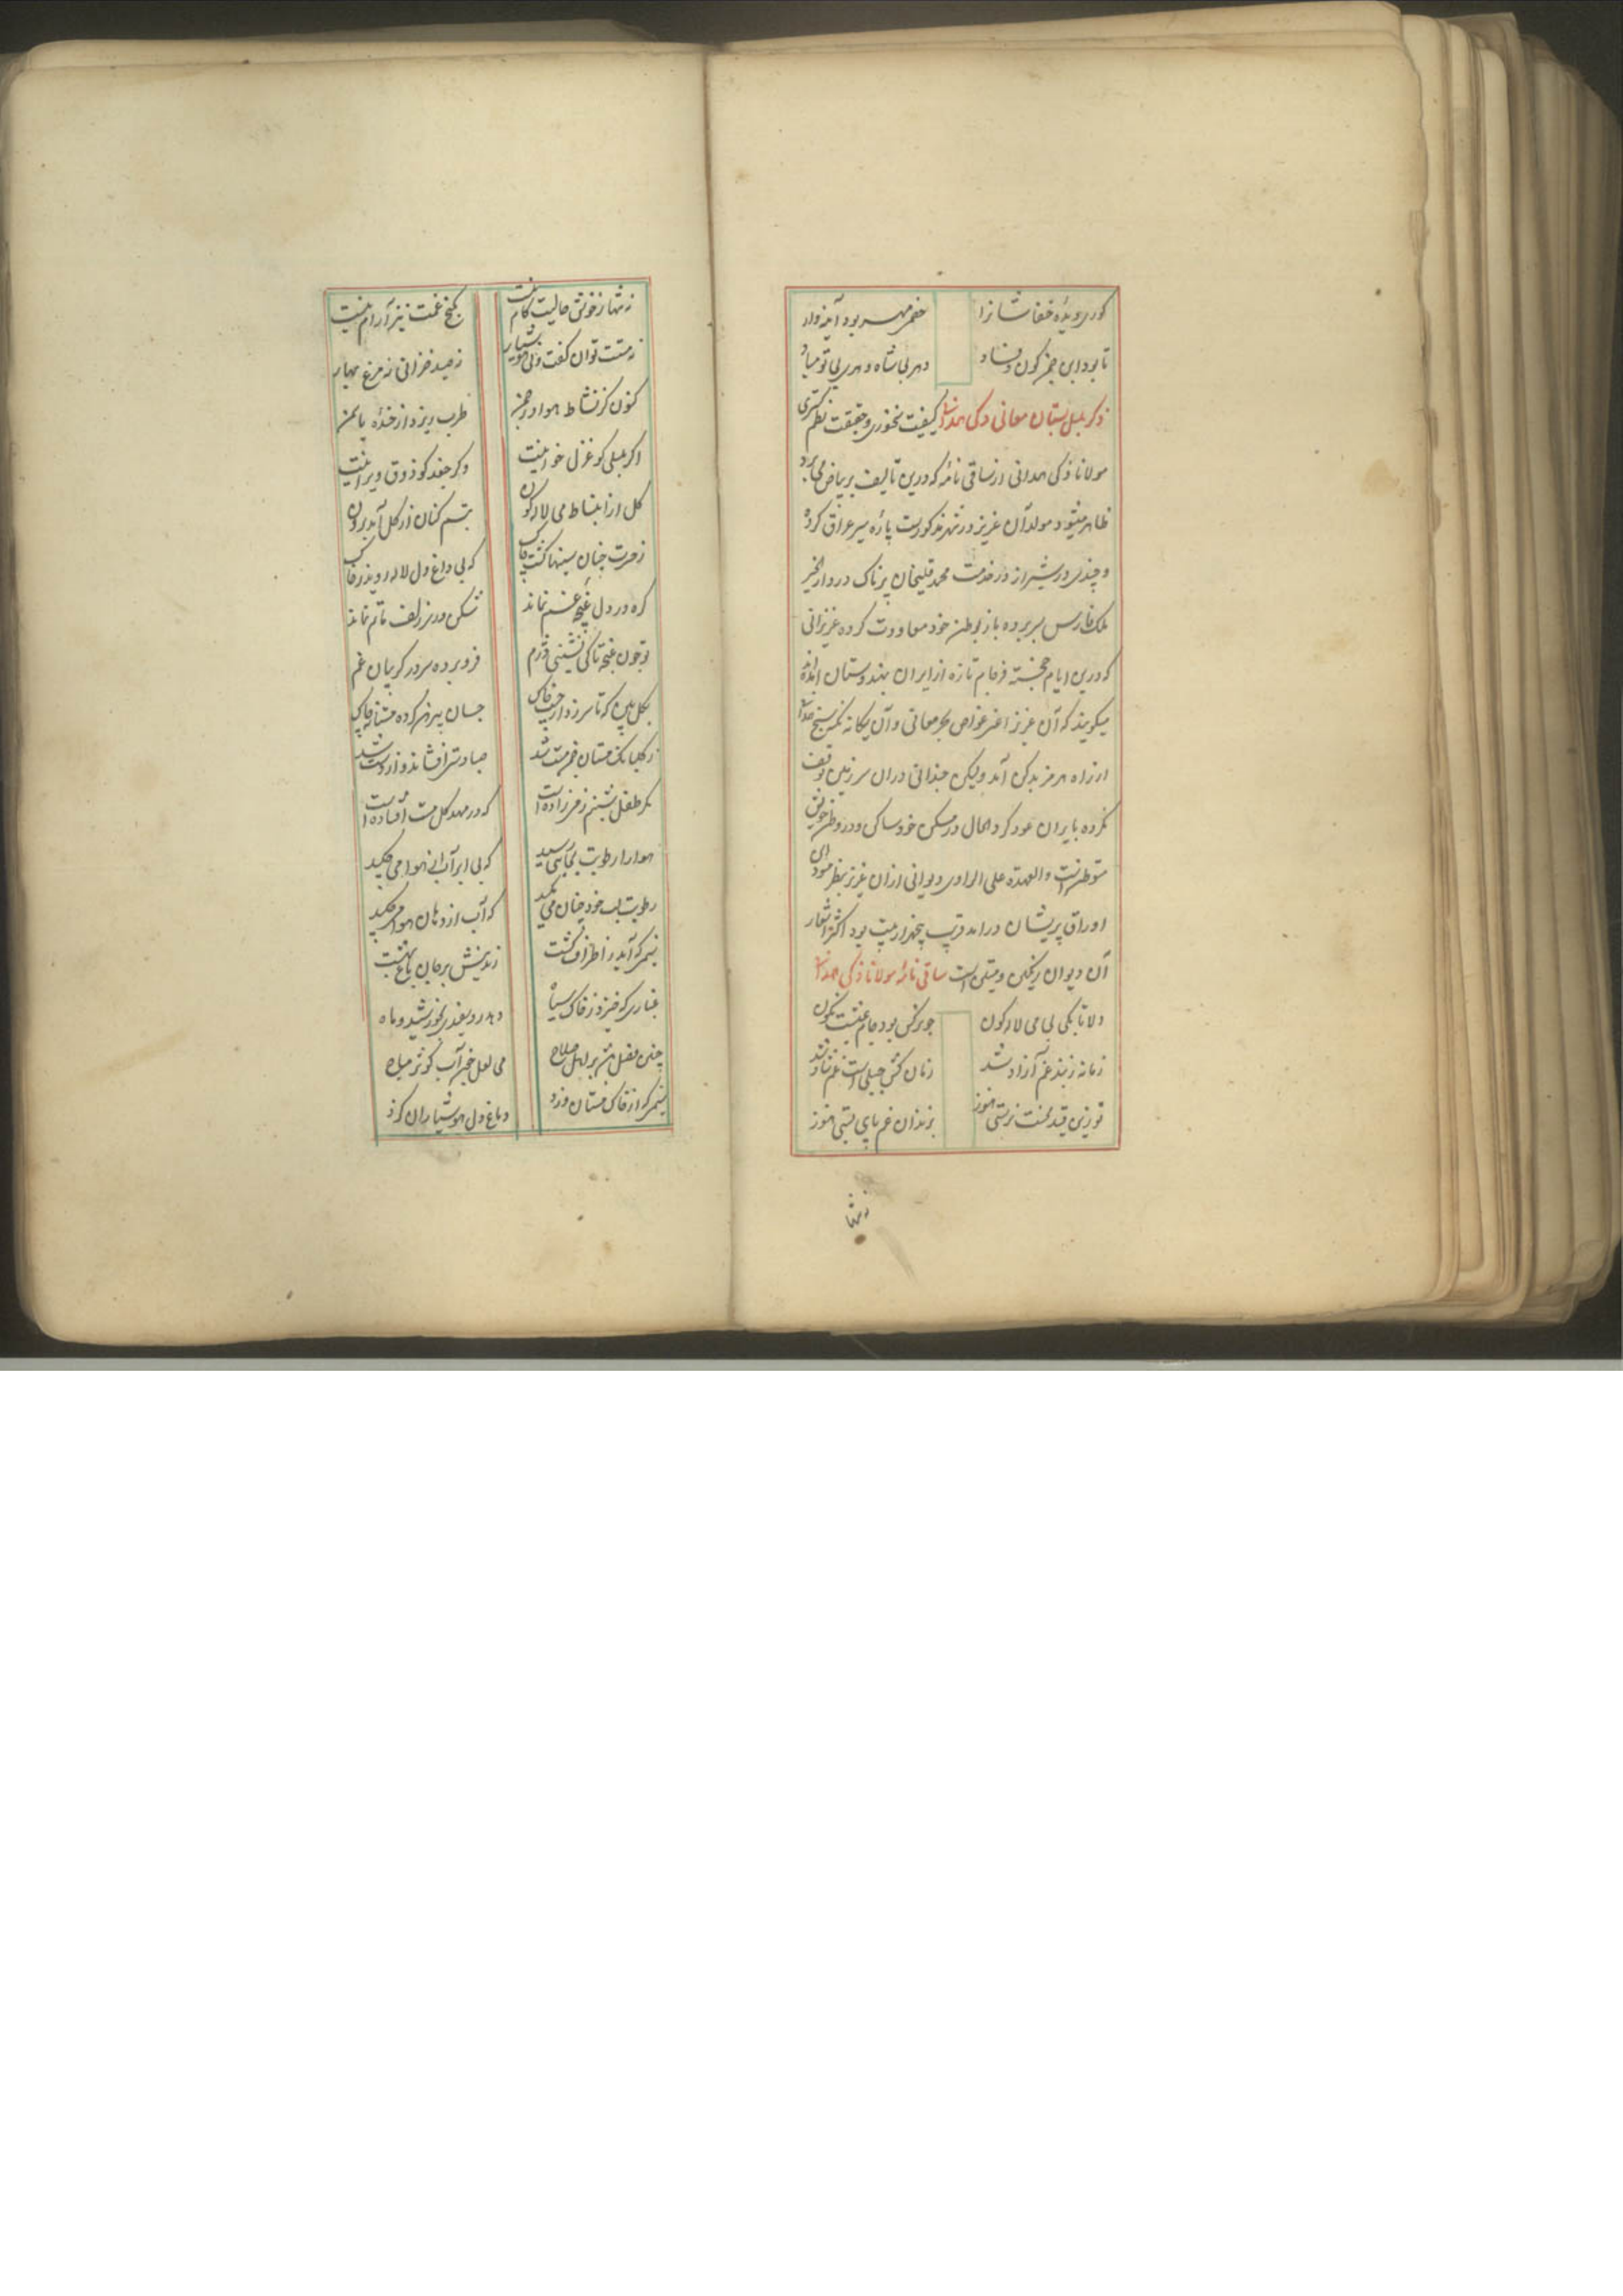 کوری دیدۀ خفاشانرا خصم مهر بود آینه وار
تا بود این چمن کون و فساد دهر بی شاه و دهری بی تو مباد
ذکر بلبل بستان معانی ذکی همدانی کیفیت سخنوری و حقیقت نظم گستری
مولانا ذکی همدانی از ساقی نامه که درین تالیف بر بیاض می برد
ظاهر میشود مولد آن عزیز در شهر مذکورست پاره سیر عراق کرده
و چندی در شیراز در خدمت محمد قلیخان پرناک در دار الخیر
ملک فارس بسر برده باز بوطن خود معاودت کرده عزیزانی
که درین ایام خجسته فرجام تازه از ایران بهندوستان آمده اند
میکویند که آن عزیز اعنی غواص بحر معانی و آن یکانه نکته سنج
از راه هرمز بدکن آمد ولیکن چندانی دران سرزمین توقف
نکرده بایران عود کرد الحال در مسکن خود ساکن و در وطن خویش
متوطن است والعهدة علی الراوی دیوانی ازان عزیز بنظر مسود این
اوراق پریشان درامد قریب پنجهزار بیت بود اکثر اشعار
آن دیوان رنکین و متین است ساقی نامۀ مولانا ذکی همدانی
دلا تا بکی بی می لاله کون چو نرکس بود جام عیشت نکون
زمانه ز بند غم آزاد شد زمان کش جبلی است غم شاد شد
تو زین قید محنت نرستی هنوز بزندان غم پای بستی هنوز
ز شها
ز شها ز خونی حالیت کام نیست بکنج غمت نیز آرام نیست
نه مستت توان کفت ونی هوشیار نه صید خزانی نه مرغ بهار
کنون کز نشاط هوا در چمن طرب ریزد از خندۀ یاسمن
اکر بلبلی کو غزل خوانیت وکر جغد کو ذوق ویرانیت
کل از انبساط می لاله کون تبسم کنان از کل آید برون
ز حسرت چنان سینها کشت پاک که بی داغ دل لاله روید ز خاک
کره در دل غنچه غم نماند شکن در سر زلف ماتم نماند
تو چون غنچه تا کی نشینی دژم فرو برده سر در کریبان غم
بکل بین که تا سر زد از جیب خاک چسان پیرهن کرده مستانه چاک
ز کلبانک مستان چمن مست شد صبا دست افشاند و از دست شد
مکر طفل شبنم ز می زاده است که در مهد کل مست افتاده است
هوا را رطوبت بجایی رسید که بی ابر آب از هوا می چکید
رطوبت لب خود چنان می مکید که آب از دهان هوا می چکید
نسیمی که آید ز اطراف کشت زند نیش بر جان باغ بهشت
غباری که خیزد ز خاک سیاه دهد روشنی بخورشید و ماه
چنین فصل بین بر اهل صلاح می لعل چون آب کوثر مباح
نسیمی که از خاک مستان وزد دماغ دل هوشیاران کزد